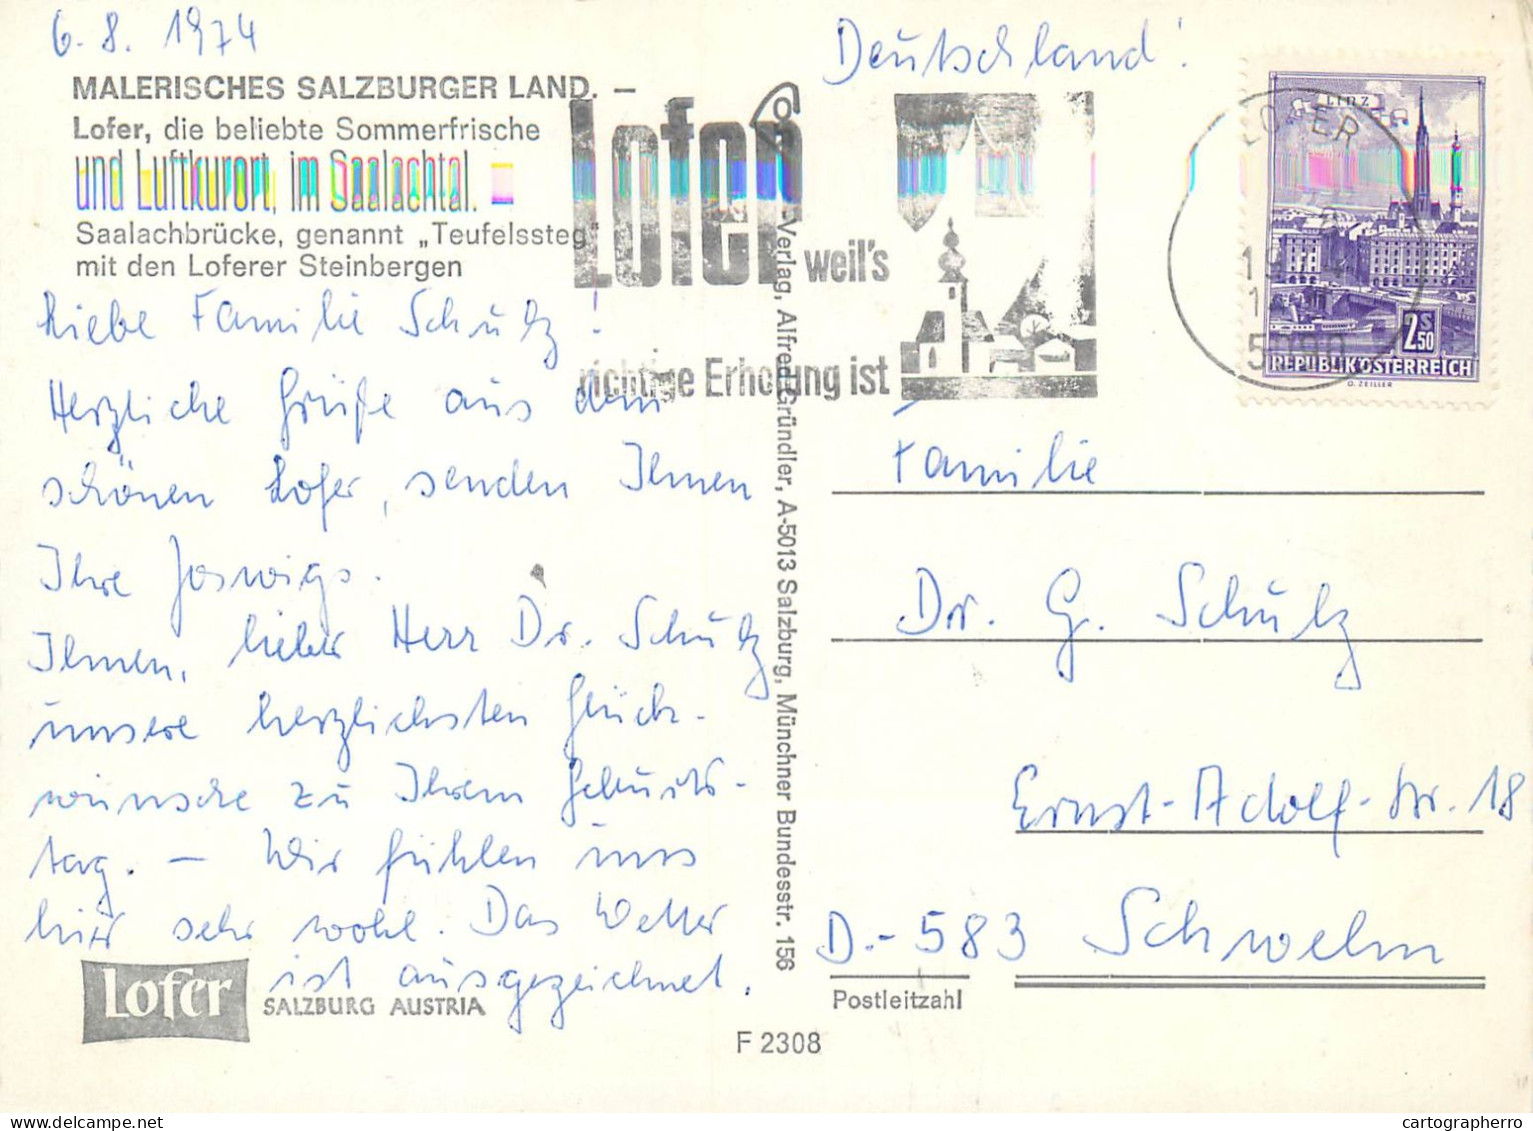 6. 8. 1974
MALERISCHES SALZBURGER LAND. –
Lofer, die beliebte Sommerfrische
und Luftkurort, im Saalachtal. –
Saalachbrücke, genannt „Teufelssteg"
mit den Loferer Steinbergen
Liebe Familie Schulz!
Herzliche Grüße aus dem
schönen Lofer, senden Ihnen
Ihre Joswigs.
Ihnen, lieber Herr Dr. Schulz
unsere herzlichsten Glück-
wünsche zu Ihrem Geburts-
tag. – Wir fühlen uns
hier sehr wohl. Das Wetter
ist ausgezeichnet.
Lofer
SALZBURG AUSTRIA
Verlag, Alfred Gründler, A-5013 Salzburg, Münchner Bundesstr. 156
F 2308
Lofer
weil's
richtige Erholung ist
Deutschland!
LOFER
5090
LINZ
2.50 S
REPUBLIK ÖSTERREICH
O. ZEILLER
Familie
Dr. G. Schulz
Ernst-Adolf-Str. 18
D.-583 Schwelm
Postleitzahl
delcampe.net
cartographerro